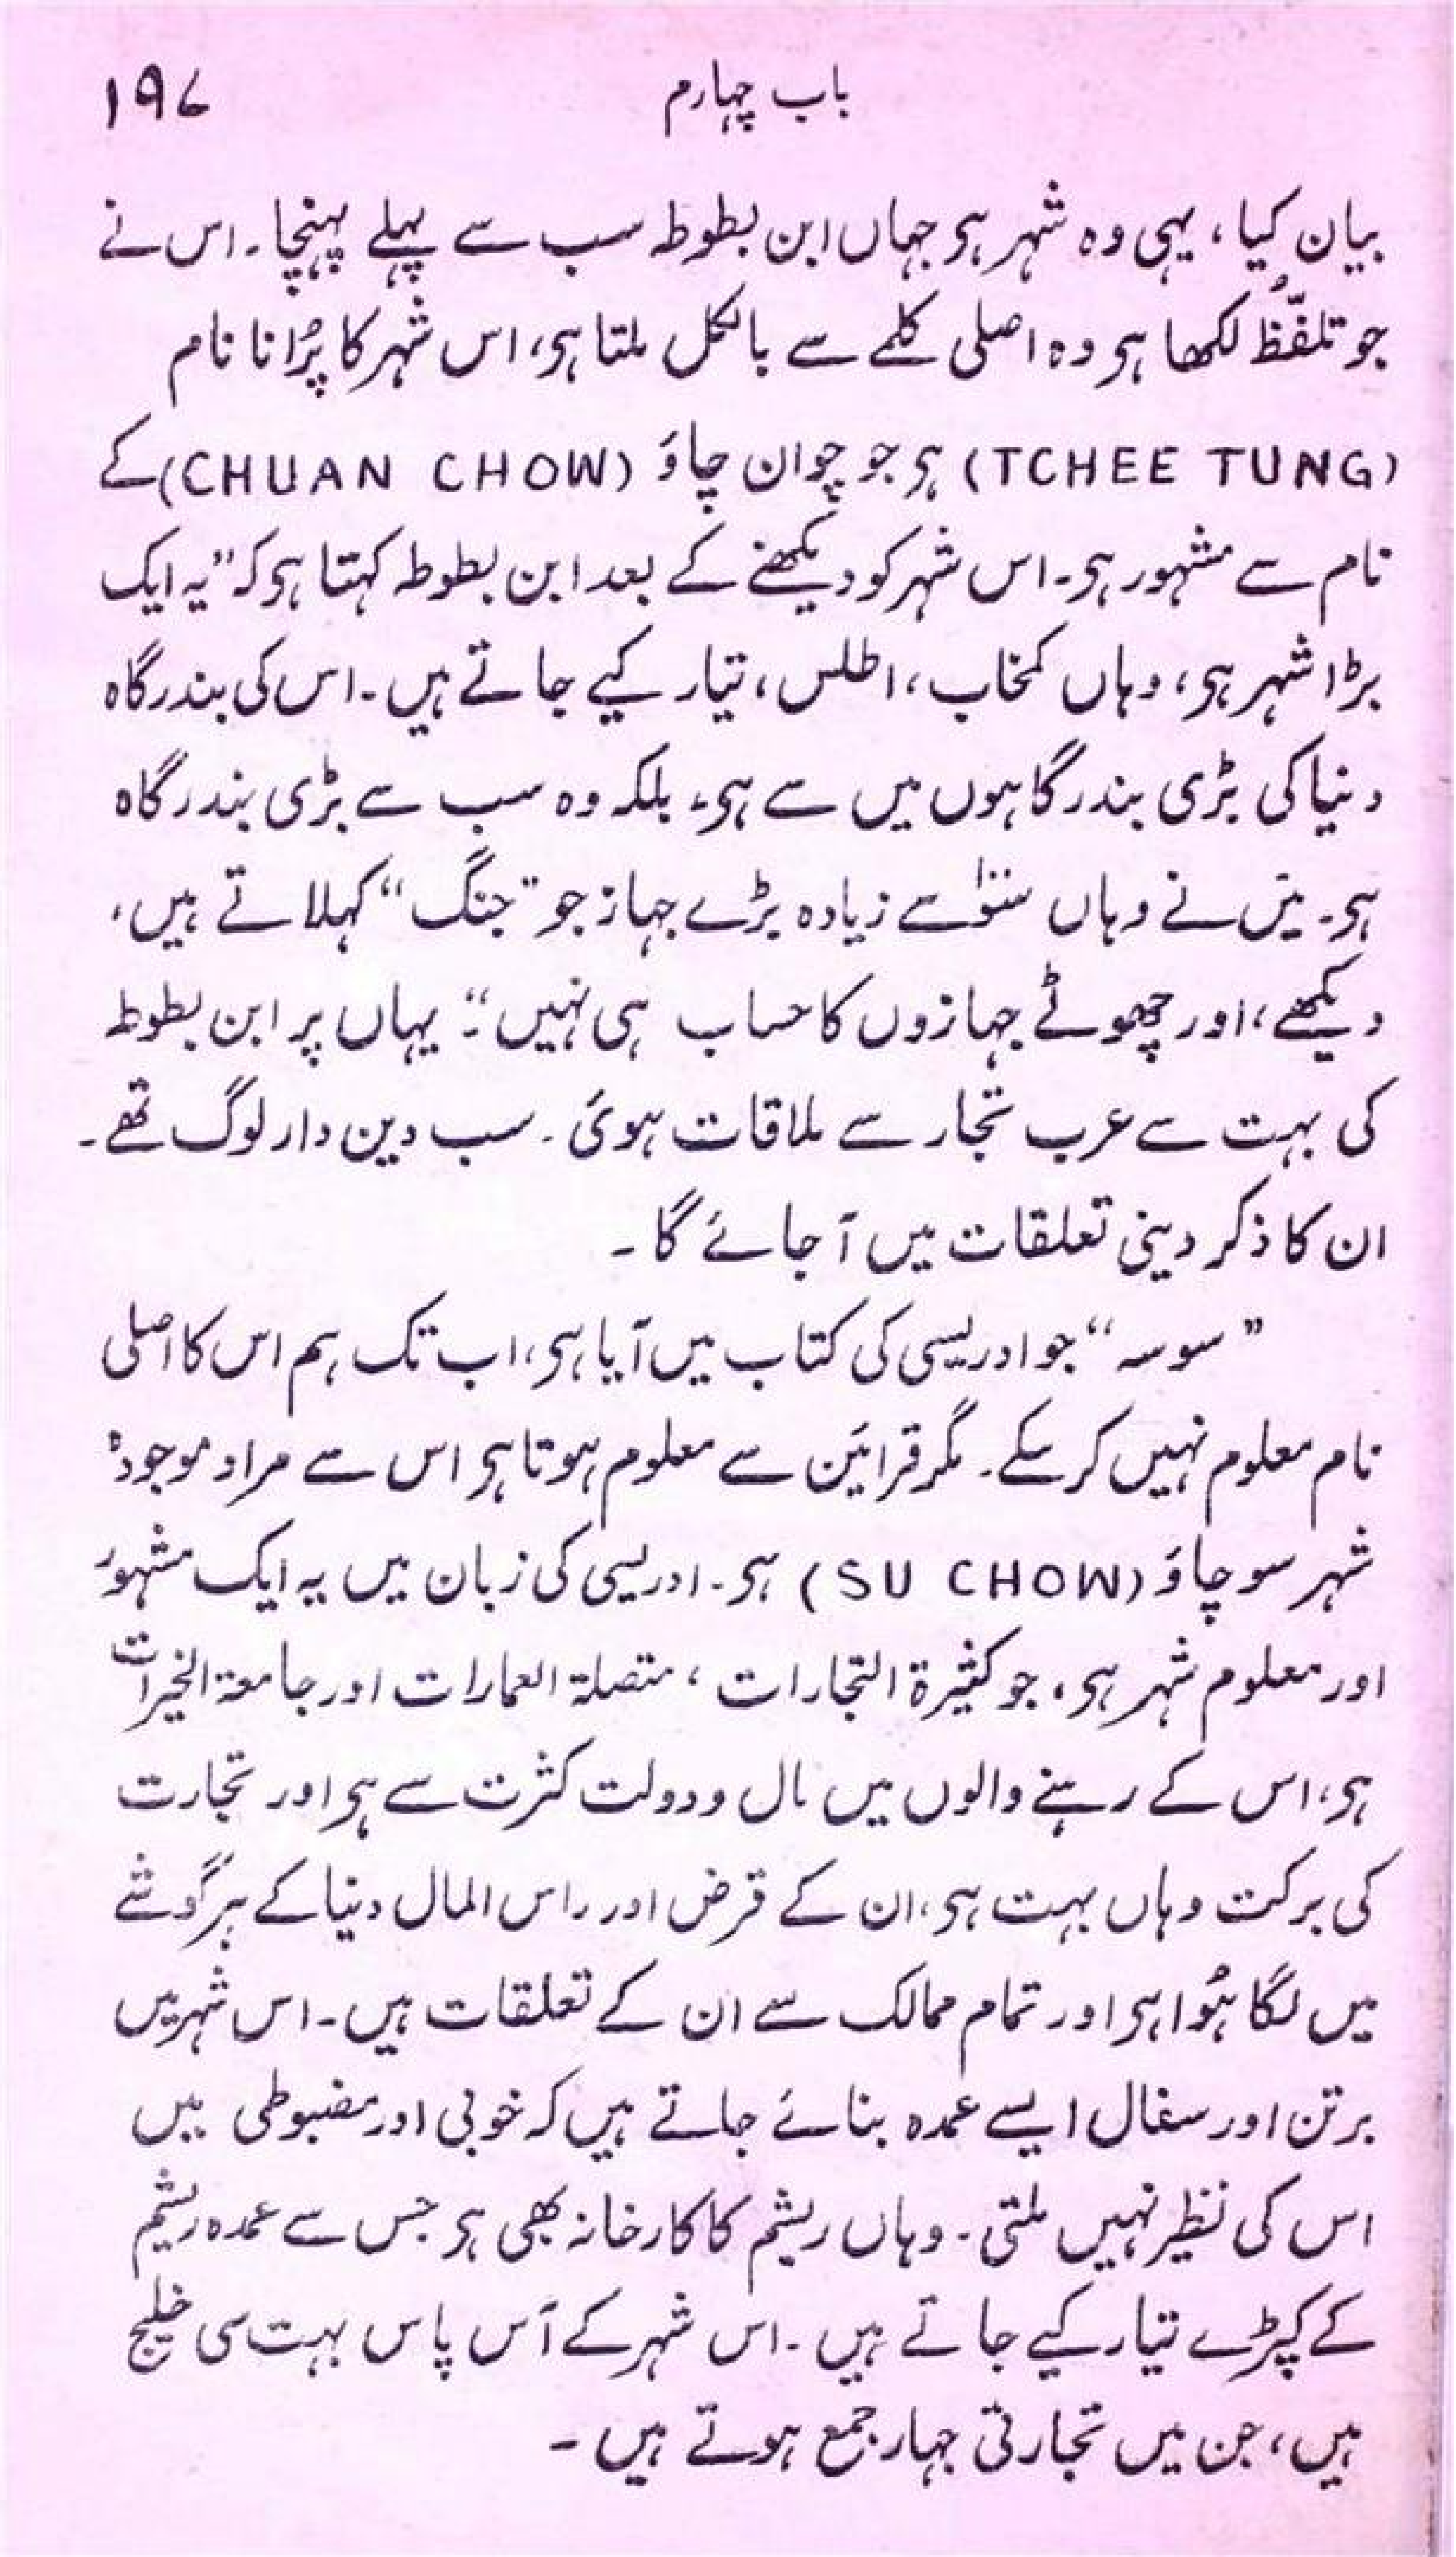 باب چہارم ۱۹۷
بیان کیا، یہی وہ شہر ہی جہاں ابن بطوطہ سب سے پہلے پہنچا۔ اس نے
جو تلفّظُ لکھا ہی وہ اصلی کلمے سے بالکل ملتا ہی، اس شہر کا پُرانا نام
(TCHEE TUNG) ہی جو چوان چاؤ (CHUAN CHOW) کے
نام سے مشہور ہی۔ اس شہر کو دیکھنے کے بعد ابن بطوطہ کہتا ہی کہ ”یہ ایک
بڑا شہر ہی، وہاں کمخاب، اطلس، تیار کیے جاتے ہیں۔ اس کی بندرگاہ
دنیا کی بڑی بندرگاہوں میں سے ہی، بلکہ وہ سب سے بڑی بندرگاہ
ہی۔ میَں نے وہاں سَو سے زیادہ بڑے جہاز جو ”جنگ“ کہلاتے ہیں،
دیکھے، اور چھوٹے جہازوں کا حساب ہی نہیں“۔ یہاں پر ابن بطوطہ
کی بہت سے عرب تجار سے ملاقات ہوئ۔ سب دین دار لوگ تھے۔
ان کا ذکر دینی تعلقات میں آ جائے گا۔
”سوسہ“ جو ادریسی کی کتاب میں آیا ہی، اب تک ہم اس کا اصلی
نام معلوم نہیں کر سکے۔ مگر قرایَن سے معلوم ہوتا ہی اس سے مراد موجودہ
شہر سو چاؤ (SU CHOW) ہی۔ ادریسی کی زبان میں یہ ایک مشہور
اور معلوم شہر ہی، جو کثیرة التجارات، متصلة العمارات اور جامعة الخیرات
ہی، اس کے رہنے والوں میں مال و دولت کثرت سے ہی اور تجارت
کی برکت وہاں بہت ہی، ان کے قرض اور راس المال دنیا کے ہر گوشے
میں لگا ہُوا ہی اور تمام ممالک سے ان کے تعلقات ہیں۔ اس شہر میں
برتن اور سفال ایسے عمدہ بنائے جاتے ہیں کہ خوبی اور مضبوطی میں
اس کی نظیر نہیں ملتی۔ وہاں ریشم کا کارخانہ بھی ہی جس سے عمدہ ریشم
کے کپڑے تیار کیے جاتے ہیں۔ اس شہر کے آس پاس بہت سی خلیج
ہیں، جن میں تجارتی جہاز جمع ہوتے ہیں۔